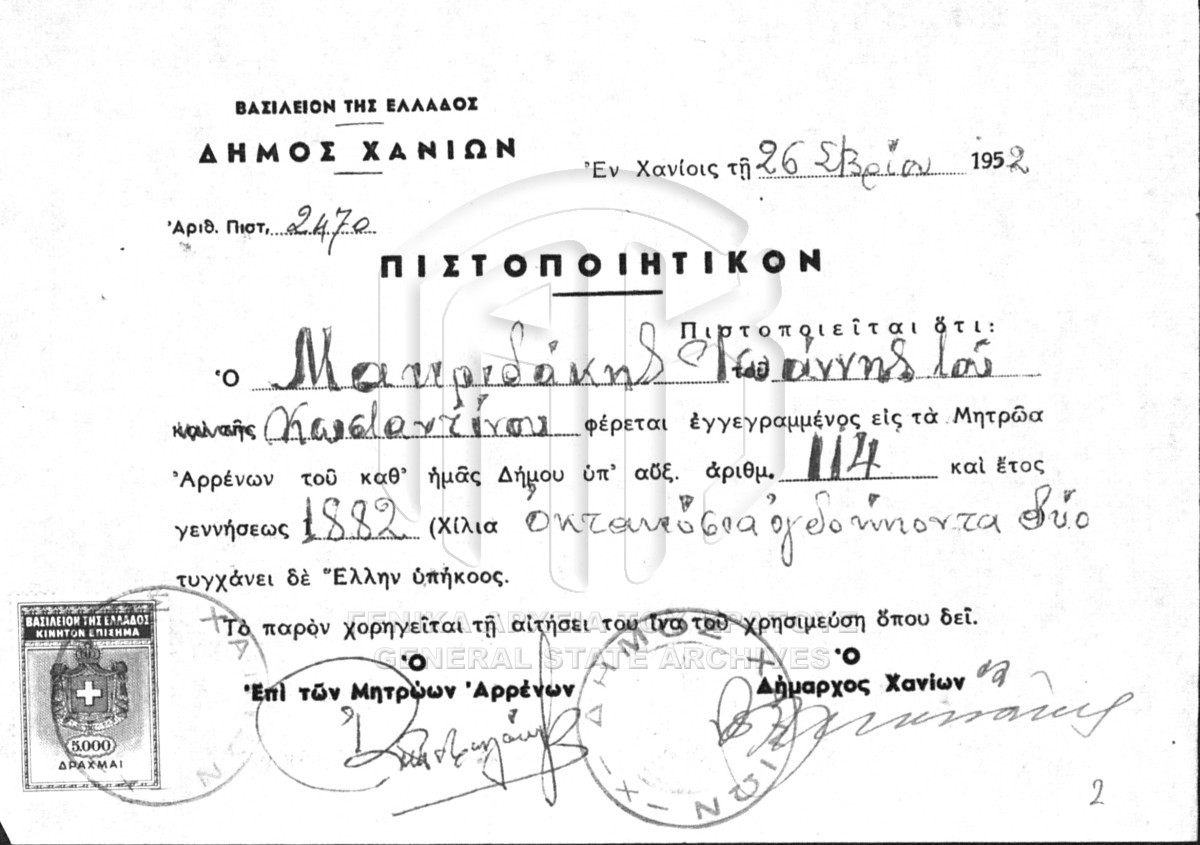 ΒΑΣΙΛΕΙΟΝ ΤΗΣ ΕΛΛΑΔΟΣ
ΔΗΜΟΣ ΧΑΝΙΩΝ
Ἐν Χανίοις τῇ 26 Σ/βρίου 1952
Ἀριθ. Πιστ. 2470
ΠΙΣΤΟΠΟΙΗΤΙΚΟΝ
Πιστοποιεῖται ὅτι:
Ὁ Μακριδάκης Ἰωάννης τοῦ
Κωσταντίνου φέρεται ἐγγεγραμμένος εἰς τὰ Μητρῶα
Ἀρρένων τοῦ καθ' ἡμᾶς Δήμου ὑπ' αὔξ. ἀριθμ. 114 καὶ ἔτος
γεννήσεως 1882 (Χίλια ὀκτακόσια ὀγδοήκοντα δύο
τυγχάνει δὲ Ἕλλην ὑπήκοος.
Τὸ παρὸν χορηγεῖται τῇ αἰτήσει του ἵνα τοῦ χρησιμεύσῃ ὅπου δεῖ.
ΓΕΝΙΚΑ ΑΡΧΕΙΑ ΤΟΥ ΚΡΑΤΟΥΣ
GENERAL STATE ARCHIVES
Ὁ
Ἐπὶ τῶν Μητρώων Ἀρρένων
Ὁ
Δήμαρχος Χανίων
ΒΑΣΙΛΕΙΟΝ ΤΗΣ ΕΛΛΑΔΟΣ
ΚΙΝΗΤΟΝ ΕΠΙΣΗΜΑ
5.000
ΔΡΑΧΜΑΙ
ΔΗΜΟΣ ΧΑΝΙΩΝ
2